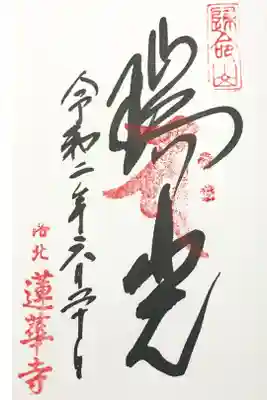 帰命山
瑞光
令和二年六月五十日
洛北
蓮華寺